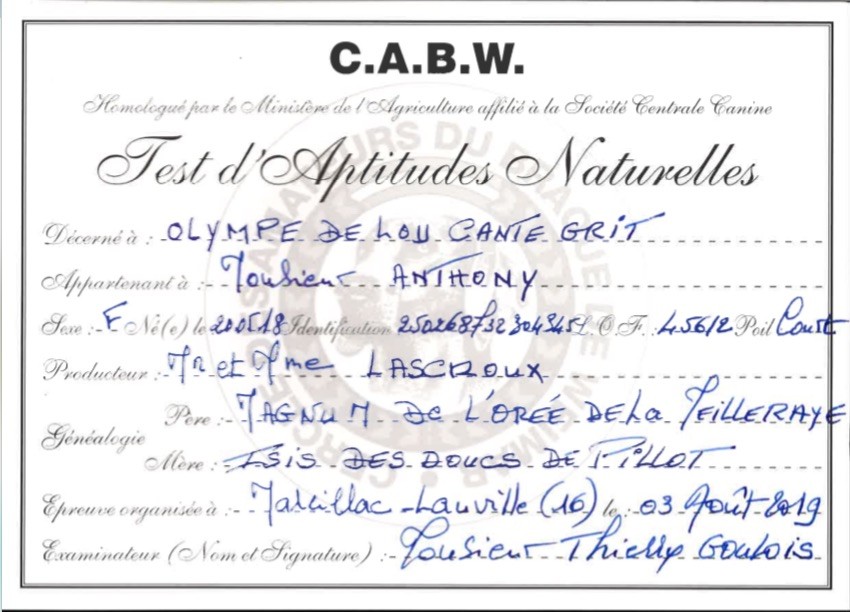 C.A.B.W.
Homologué par le Ministère de l'Agriculture affilié à la Société Centrale Canine
Test d'Aptitudes Naturelles
Décerné à : OLYMPE DE LOU CANTE GRIT
Appartenant à : Monsieur ANTHONY
Sexe : F Né(e) le 200518 Identification 250268732304345 L.O.F. : 45612 Poil Court
Producteur : Mr et Mme LASCROUX
Père : MAGNUM DE L'ORÉE DE La MEILLERAYE
Généalogie
Mère : ISIS DES DOUCS DE PILLOT
Epreuve organisée à : Marcillac-Lanville (16) le : 03 Août 2019
Examinateur (Nom et Signature) : Monsieur Thierry GOULOIS